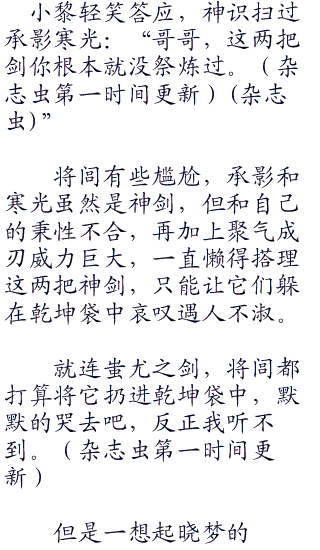 小黎轻笑答应，神识扫过
承影寒光：“哥哥，这两把
剑你根本就没祭炼过。（杂
志虫第一时间更新）(杂志
虫)”
将闾有些尴尬，承影和
寒光虽然是神剑，但和自己
的秉性不合，再加上聚气成
刃威力巨大，一直懒得搭理
这两把神剑，只能让它们躲
在乾坤袋中哀叹遇人不淑。
就连蚩尤之剑，将闾都
打算将它扔进乾坤袋中，默
默的哭去吧，反正我听不
到。（杂志虫第一时间更
新）
但是一想起晓梦的